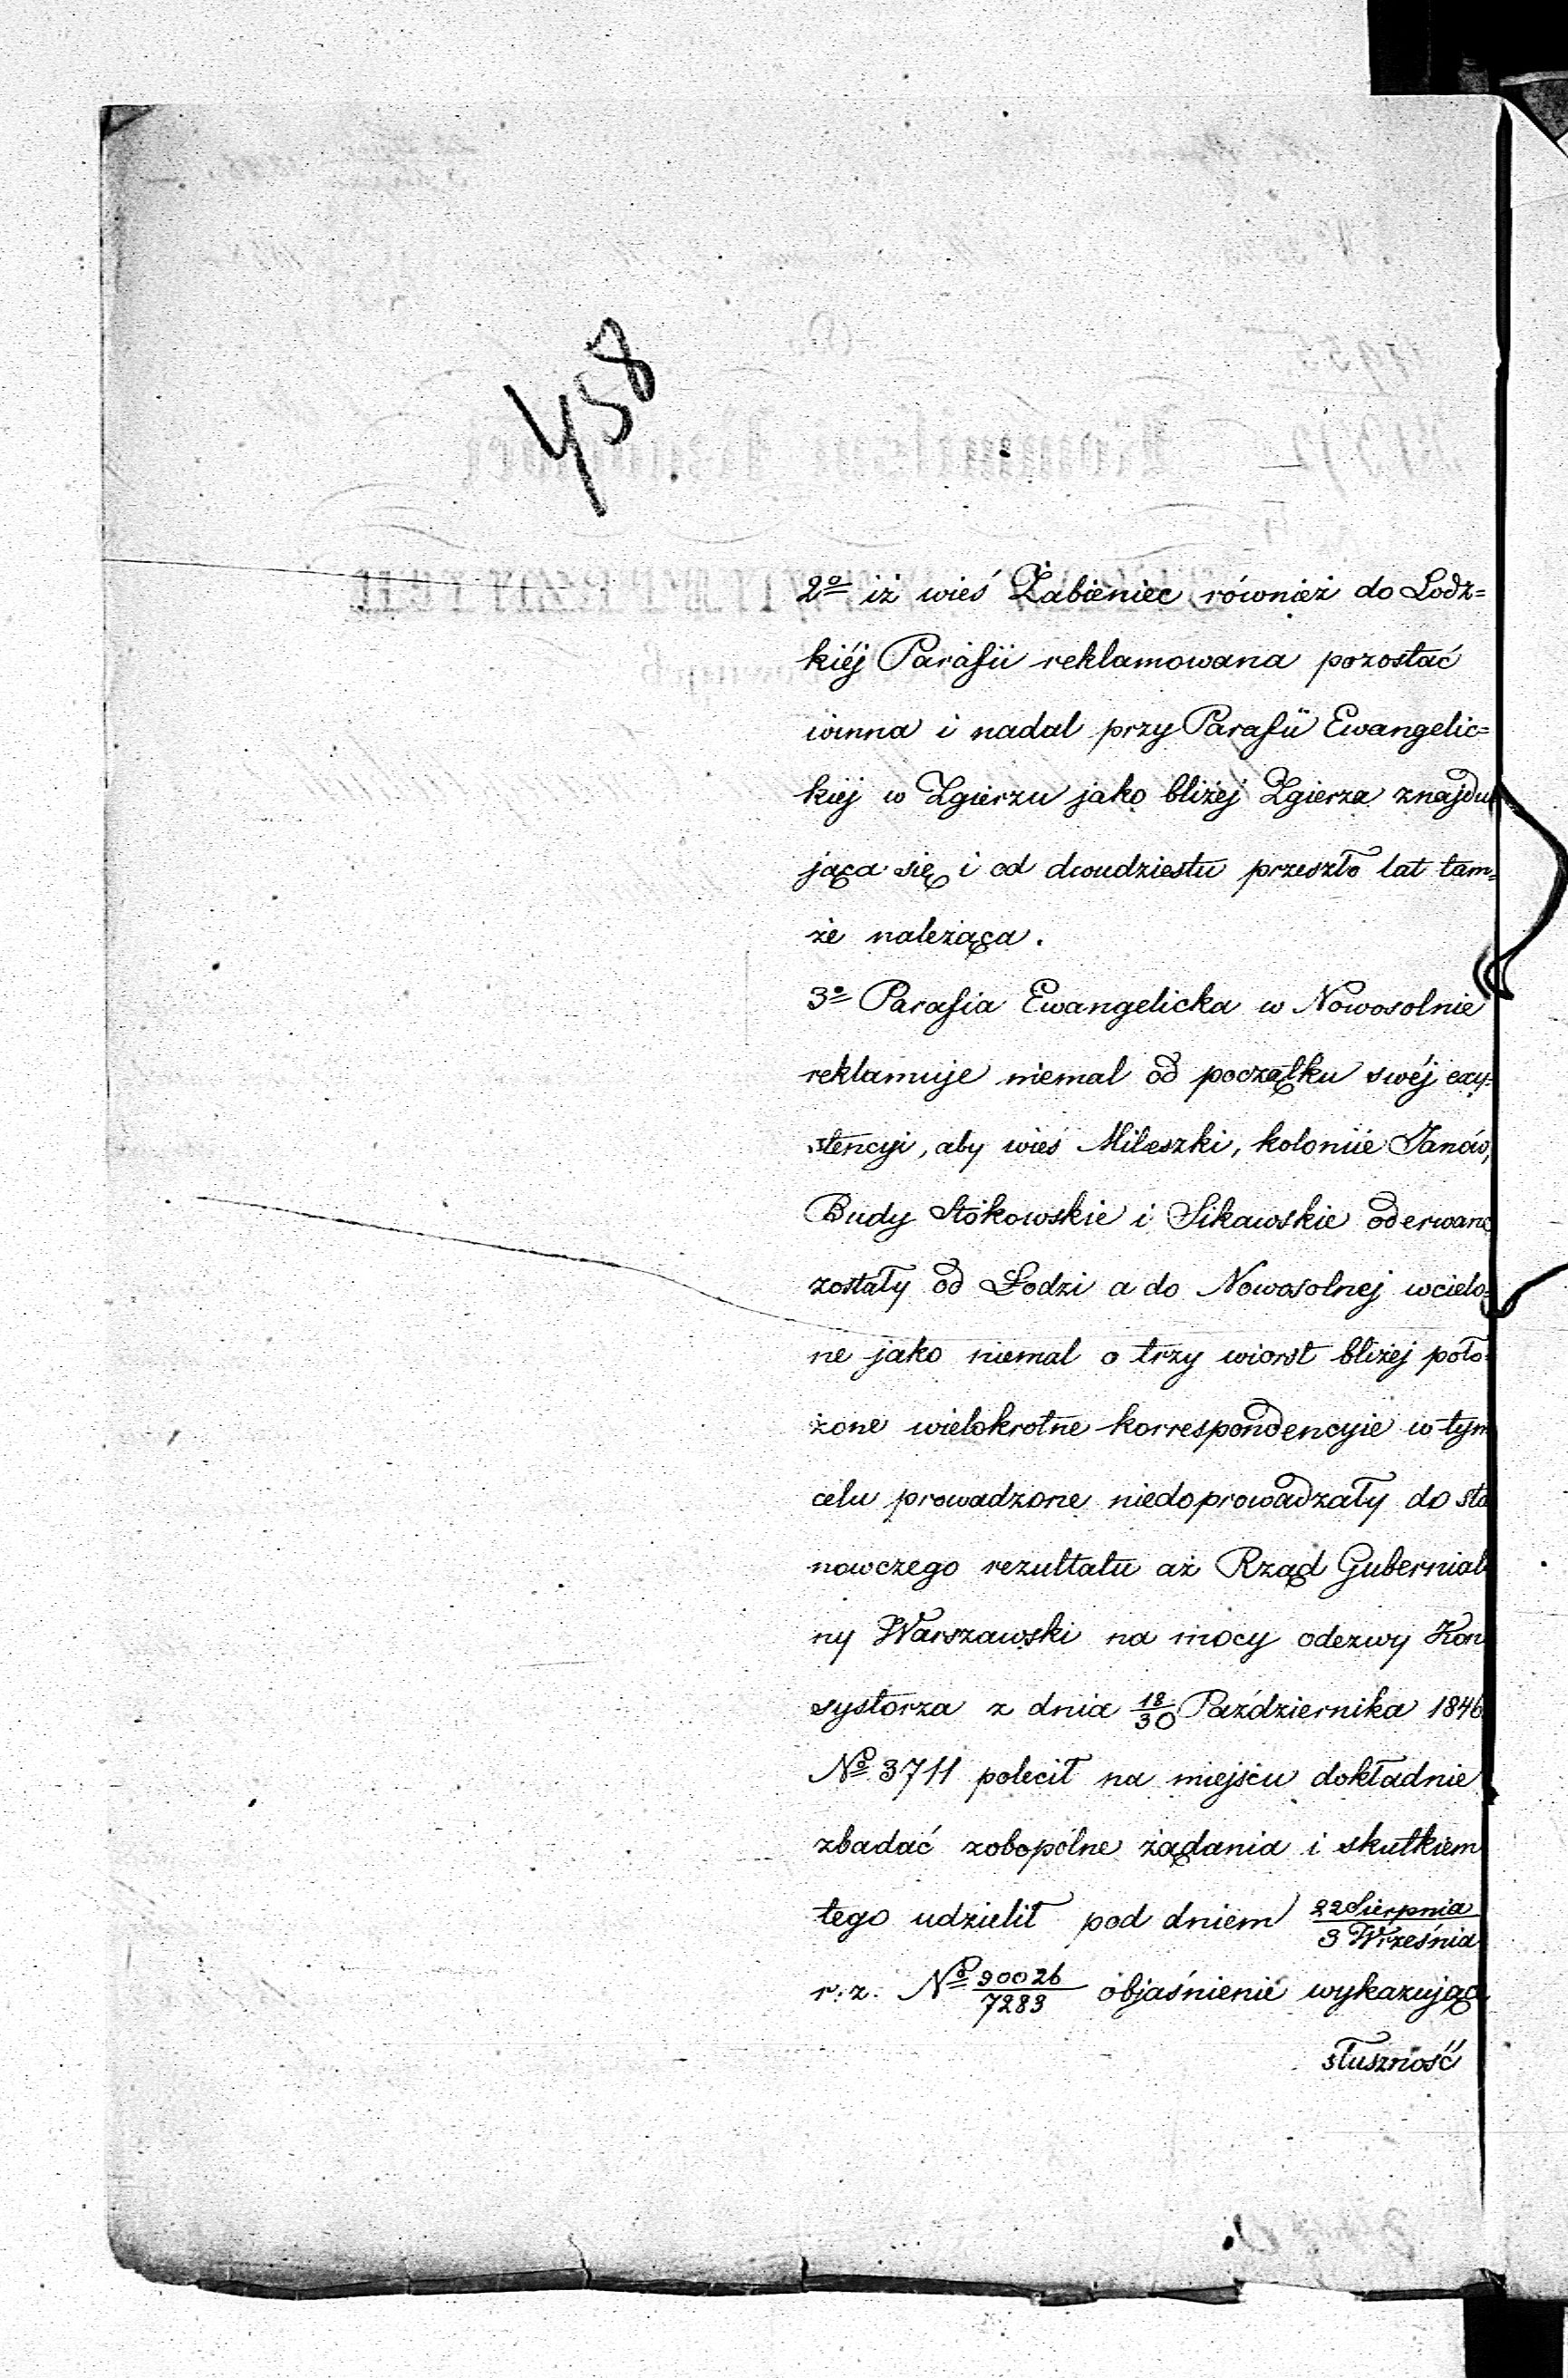 458
2o iż wieś Żabieniec również do Lodz=
kiéj Parafii reklamowana pozostać
winna i nadal przy Parafii Ewangelic=
kiej w Zgierzu jako bliżej Zgierza znajdu
jąca się i od dwudziestu przeszło lat tam=
że należąca.
3o Parafia Ewangelicka w Nowosolnie
reklamuje niemal od początku swéj exy=
stencyi, aby wieś Mileszki, koloniie Janów,
Budy Stokowskie i Sikawskie oderwane
zostały od Łodzi a do Nowosolnej wcielo=
ne jako niemal o trzy wiorst bliżej poło=
żone wielokrotne korrespondencyie w tym
celu prowadzone niedoprowadzały do sta
nowczego rezultatu aż Rząd Gubernial
ny Warszawski na mocy odezwy Kon
systorza z dnia 18/30 Października 1846
No 3711 polecił na miejscu dokładnie
zbadać zobopólne żądania i skutkiem
tego udzielił pod dniem 22 Sierpnia/3 Września
r: z: No 90026/7283 objaśnienie wykazując
słuszność